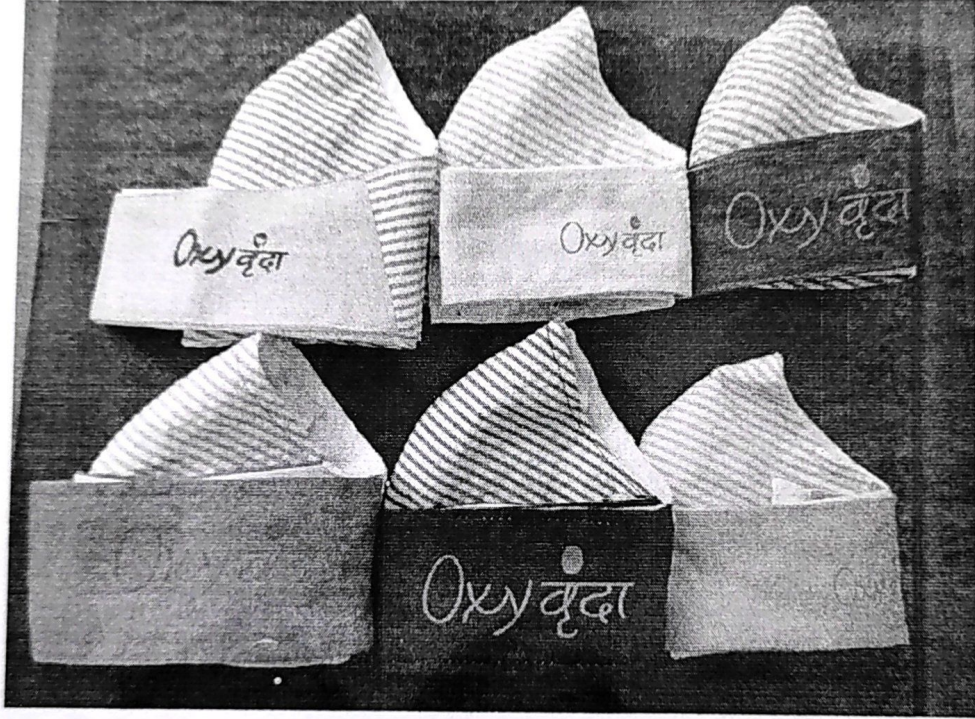 Oxyवृंदा
Oxyवृंदा
Oxyवृंदा
Oxyवृंदा